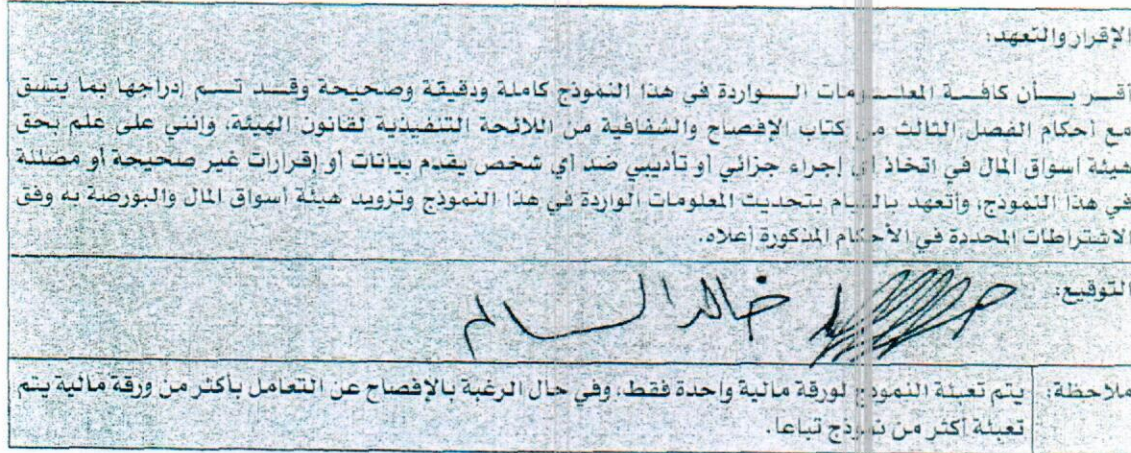 الإقرار والتعهد:
أقــر بــــأن كافــــة المعلـــــومات الـــــواردة في هذا النموذج كاملة ودقيقة وصحيحة وقــــد تـــم إدراجها بما يتسق
مع أحكام الفصل الثالث من كتاب الإفصاح والشفافية من اللائحة التنفيذية لقانون الهيئة، وإنني على علم بحق
هيئة أسواق المال في اتخاذ أي إجراء جزائي أو تأديبي ضد أي شخص يقدم بيانات أو إقرارات غير صحيحة أو مضللة
في هذا النموذج، وأتعهد بالقيام بتحديث المعلومات الواردة في هذا النموذج وتزويد هيئة أسواق المال والبورصة به وفق
الاشتراطات المحددة في الأحكام المذكورة أعلاه.
التوقيع: خالد السالم
ملاحظة: يتم تعبئة النموذج لورقة مالية واحدة فقط، وفي حال الرغبة بالإفصاح عن التعامل بأكثر من ورقة مالية يتم
تعبئة أكثر من نموذج تباعا.